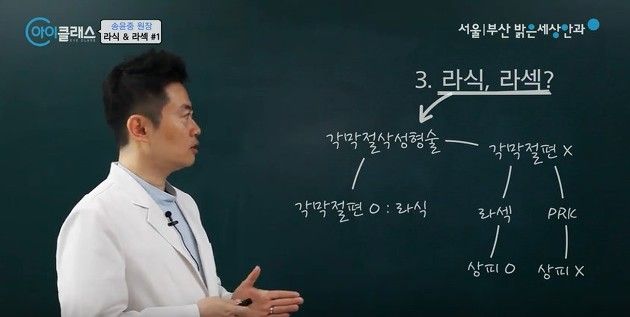 아이클래스
EYE CLASS
송윤중 원장
라식 & 라섹 #1
서울|부산 밝은세상안과
3. 라식, 라섹?
각막절삭성형술
각막절편 X
각막절편 O : 라식
라섹
PRK
상피 O
상피 X